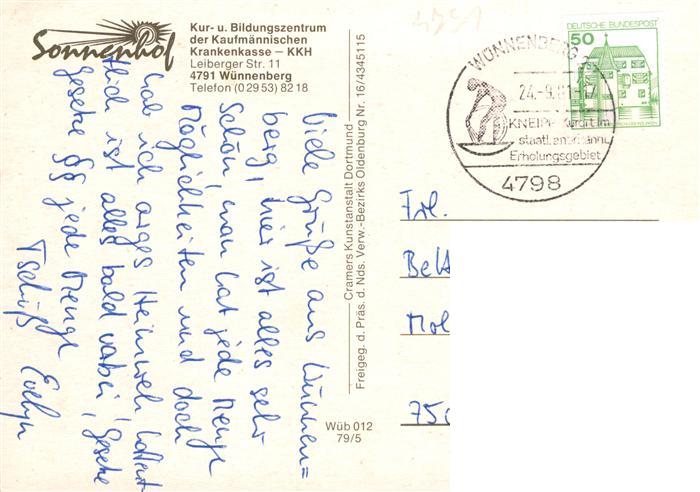 Sonnenhof
Kur- u. Bildungszentrum
der Kaufmännischen
Krankenkasse – KKH
Leiberger Str. 11
4791 Wünnenberg
Telefon (0 29 53) 82 18
Viele Grüße aus Wünnen=
berg, hier ist alles sehr
Schön, man hat jede Menge
Möglichkeiten und doch
hab ich arges Heimweh hoffent
lich ist alles bald vorbei! Geseke
Geseke §§ jede Menge
Tschüß Evelyn
Cramers Kunstanstalt Dortmund
Freigeg. d. Präs. d. Nds. Verw.-Bezirks Oldenburg Nr. 16/4345115
Wüb 012
79/5
4791
WÜNNENBERG 2
24.-9.81-17
KNEIPP-Kurort im
staatl. anerkannt
Erholungsgebiet
4798
DEUTSCHE BUNDESPOST
50
Frl.
Mol
75